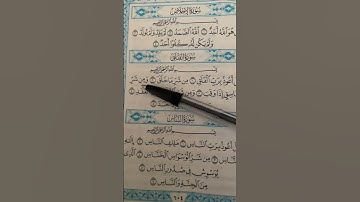 سُورَةُ الإِخْلَاصِ
بِسْمِ اللَّهِ الرَّحْمَٰنِ الرَّحِيمِ
هُوَ اللَّهُ أَحَدٌ ۝ اللَّهُ الصَّمَدُ ۝ لَمْ يَلِدْ وَلَمْ يُولَدْ ۝
وَلَمْ يَكُن لَّهُ كُفُوًا أَحَدٌ ۝
سُورَةُ الفَلَقِ
بِسْمِ اللَّهِ الرَّحْمَٰنِ الرَّحِيمِ
أَعُوذُ بِرَبِّ الْفَلَقِ ۝ مِن شَرِّ مَا خَلَقَ ۝ وَمِن شَرِّ
إِذَا وَقَبَ ۝ وَمِن
سُورَةُ النَّاسِ
بِسْمِ اللَّهِ الرَّحْمَٰنِ الرَّحِيمِ
أَعُوذُ بِرَبِّ النَّاسِ ۝ مَلِكِ النَّاسِ ۝ إِلَٰهِ
۝ مِن شَرِّ الْوَسْوَاسِ الْخَنَّاسِ ۝ الَّذِي
يُوَسْوِسُ فِي صُدُورِ النَّاسِ ۝
مِنَ الْجِنَّةِ وَالنَّاسِ ۝